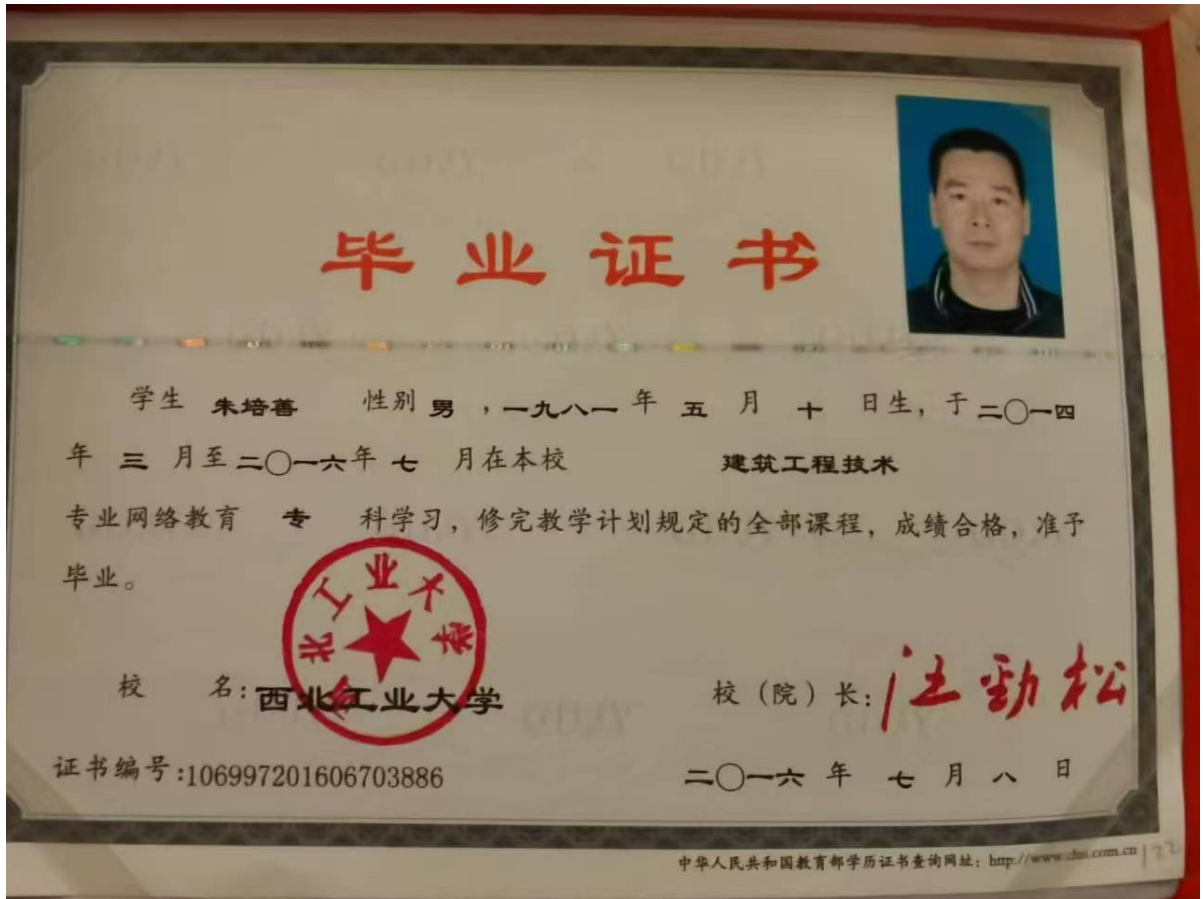 毕业证书
学生 朱培善 性别 男 ，一九八一 年 五 月 十 日生，于 二〇一四
年 三 月至 二〇一六 年 七 月在本校 建筑工程技术
专业网络教育 专 科学习，修完教学计划规定的全部课程，成绩合格，准予
毕业。
西北工业大学
校 名：西北工业大学
校（院）长：汪劲松
证书编号：106997201606703886
二〇一六 年 七 月 八 日
中华人民共和国教育部学历证书查询网址：http://www.chsi.com.cn